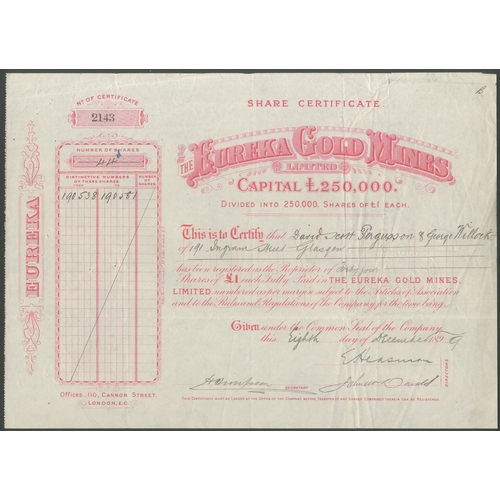 B
SHARE CERTIFICATE.
Nº. OF CERTIFICATE
2143
NUMBER OF SHARES
44
DISTINCTIVE NUMBERS OF THESE SHARES
FROM TO
NUMBER OF SHARES
190538 190581
EUREKA
THE EUREKA GOLD MINES,
LIMITED
CAPITAL £250,000.
DIVIDED INTO 250,000 SHARES OF £1 EACH.
This is to Certify that David Scott Fergusson & George Willock
of 191 Ingram Street Glasgow
has been registered as the Proprietor of Forty four
Shares of £1 each Fully Paid in THE EUREKA GOLD MINES,
LIMITED numbered as per margin subject to the Articles of Association
and to the Rules and Regulations of the Company for the time being.
Given under the Common Seal of the Company
this Eighth day of December 1899
DIRECTORS.
SECRETARY
OFFICES, 110, CANNON STREET,
LONDON, E.C.
THIS CERTIFICATE MUST BE LODGED AT THE OFFICE OF THE COMPANY BEFORE TRANSFER OF ANY SHARES COMPRISED HEREIN CAN BE REGISTERED.